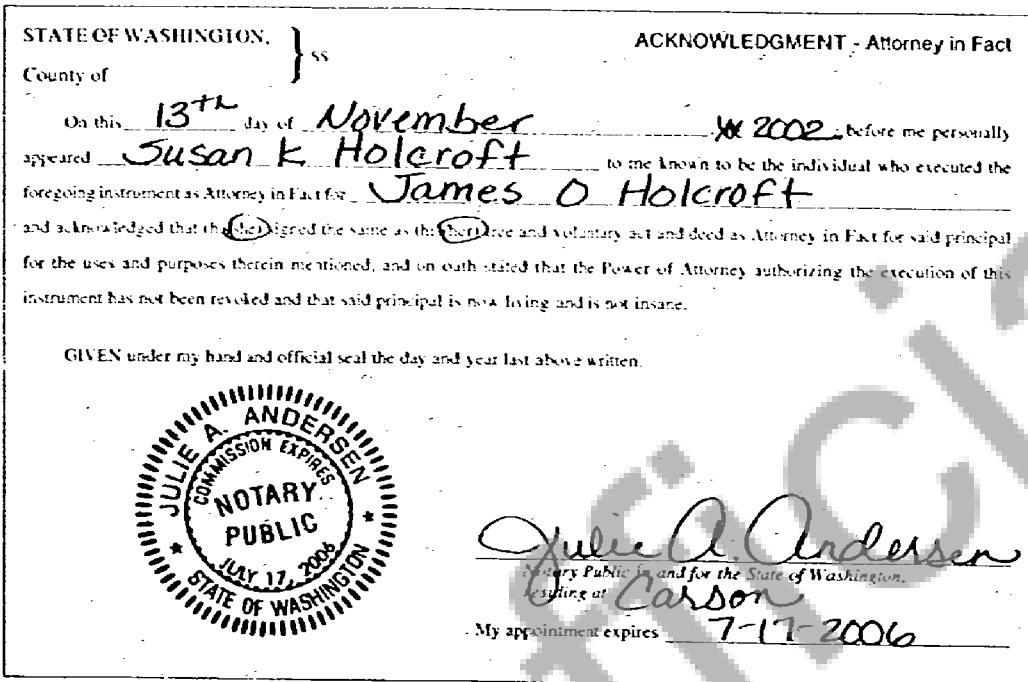 STATE OF WASHINGTON,
County of
ss
ACKNOWLEDGMENT - Attorney in Fact
On this 13th day of November 2002, before me personally
appeared Susan K Holcroft to me known to be the individual who executed the
foregoing instrument as Attorney in Fact for James O Holcroft
and acknowledged that (she) signed the same as (her) free and voluntary act and deed as Attorney in Fact for said principal
for the uses and purposes therein mentioned, and on oath stated that the Power of Attorney authorizing the execution of this
instrument has not been revoked and that said principal is now living and is not insane.
GIVEN under my hand and official seal the day and year last above written.
JULIE A. ANDERSEN
COMMISSION EXPIRES
NOTARY
PUBLIC
JULY 17, 2006
STATE OF WASHINGTON
Julie A. Andersen
Notary Public in and for the State of Washington,
residing at Carson
My appointment expires 7-17-2006